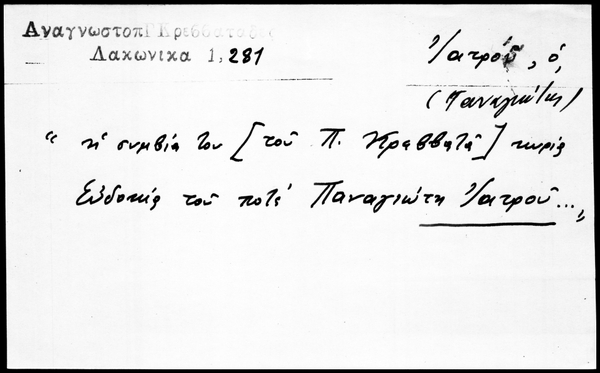 ΑναγνωστοπΓΚρεββαταδες
Λακωνικα 1, 281
Ἰατροῦ, ὁ,
(Παναγιώτης)
"ἡ συμβία του [τοῦ Π. Κρεββατᾶ] κυρίς
Εὐδοκίς τοῦ ποτέ Παναγιώτη Ἰατροῦ...,,